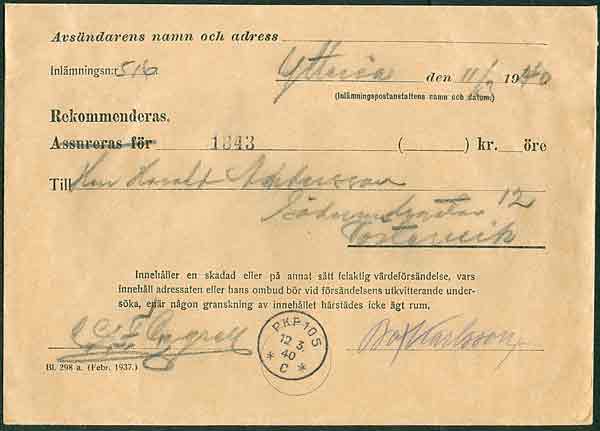 Avsändarens namn och adress
Inlämningsn:r 516
den 11/3 1940
(Inlämningspostanstaltens namn och datum.)
Rekommenderas.
Assureras för 1843 ( ) kr. öre
Till Herr Harald Andersson
12
Västervik
Innehåller en skadad eller på annat sätt felaktig värdeförsändelse, vars
innehåll adressaten eller hans ombud bör vid försändelsens utkvitterande under-
söka, enär någon granskning av innehållet härstädes icke ägt rum.
PKP 105
12 3.
40
* C *
Karlsson
Bl. 298 a. (Febr. 1937.)